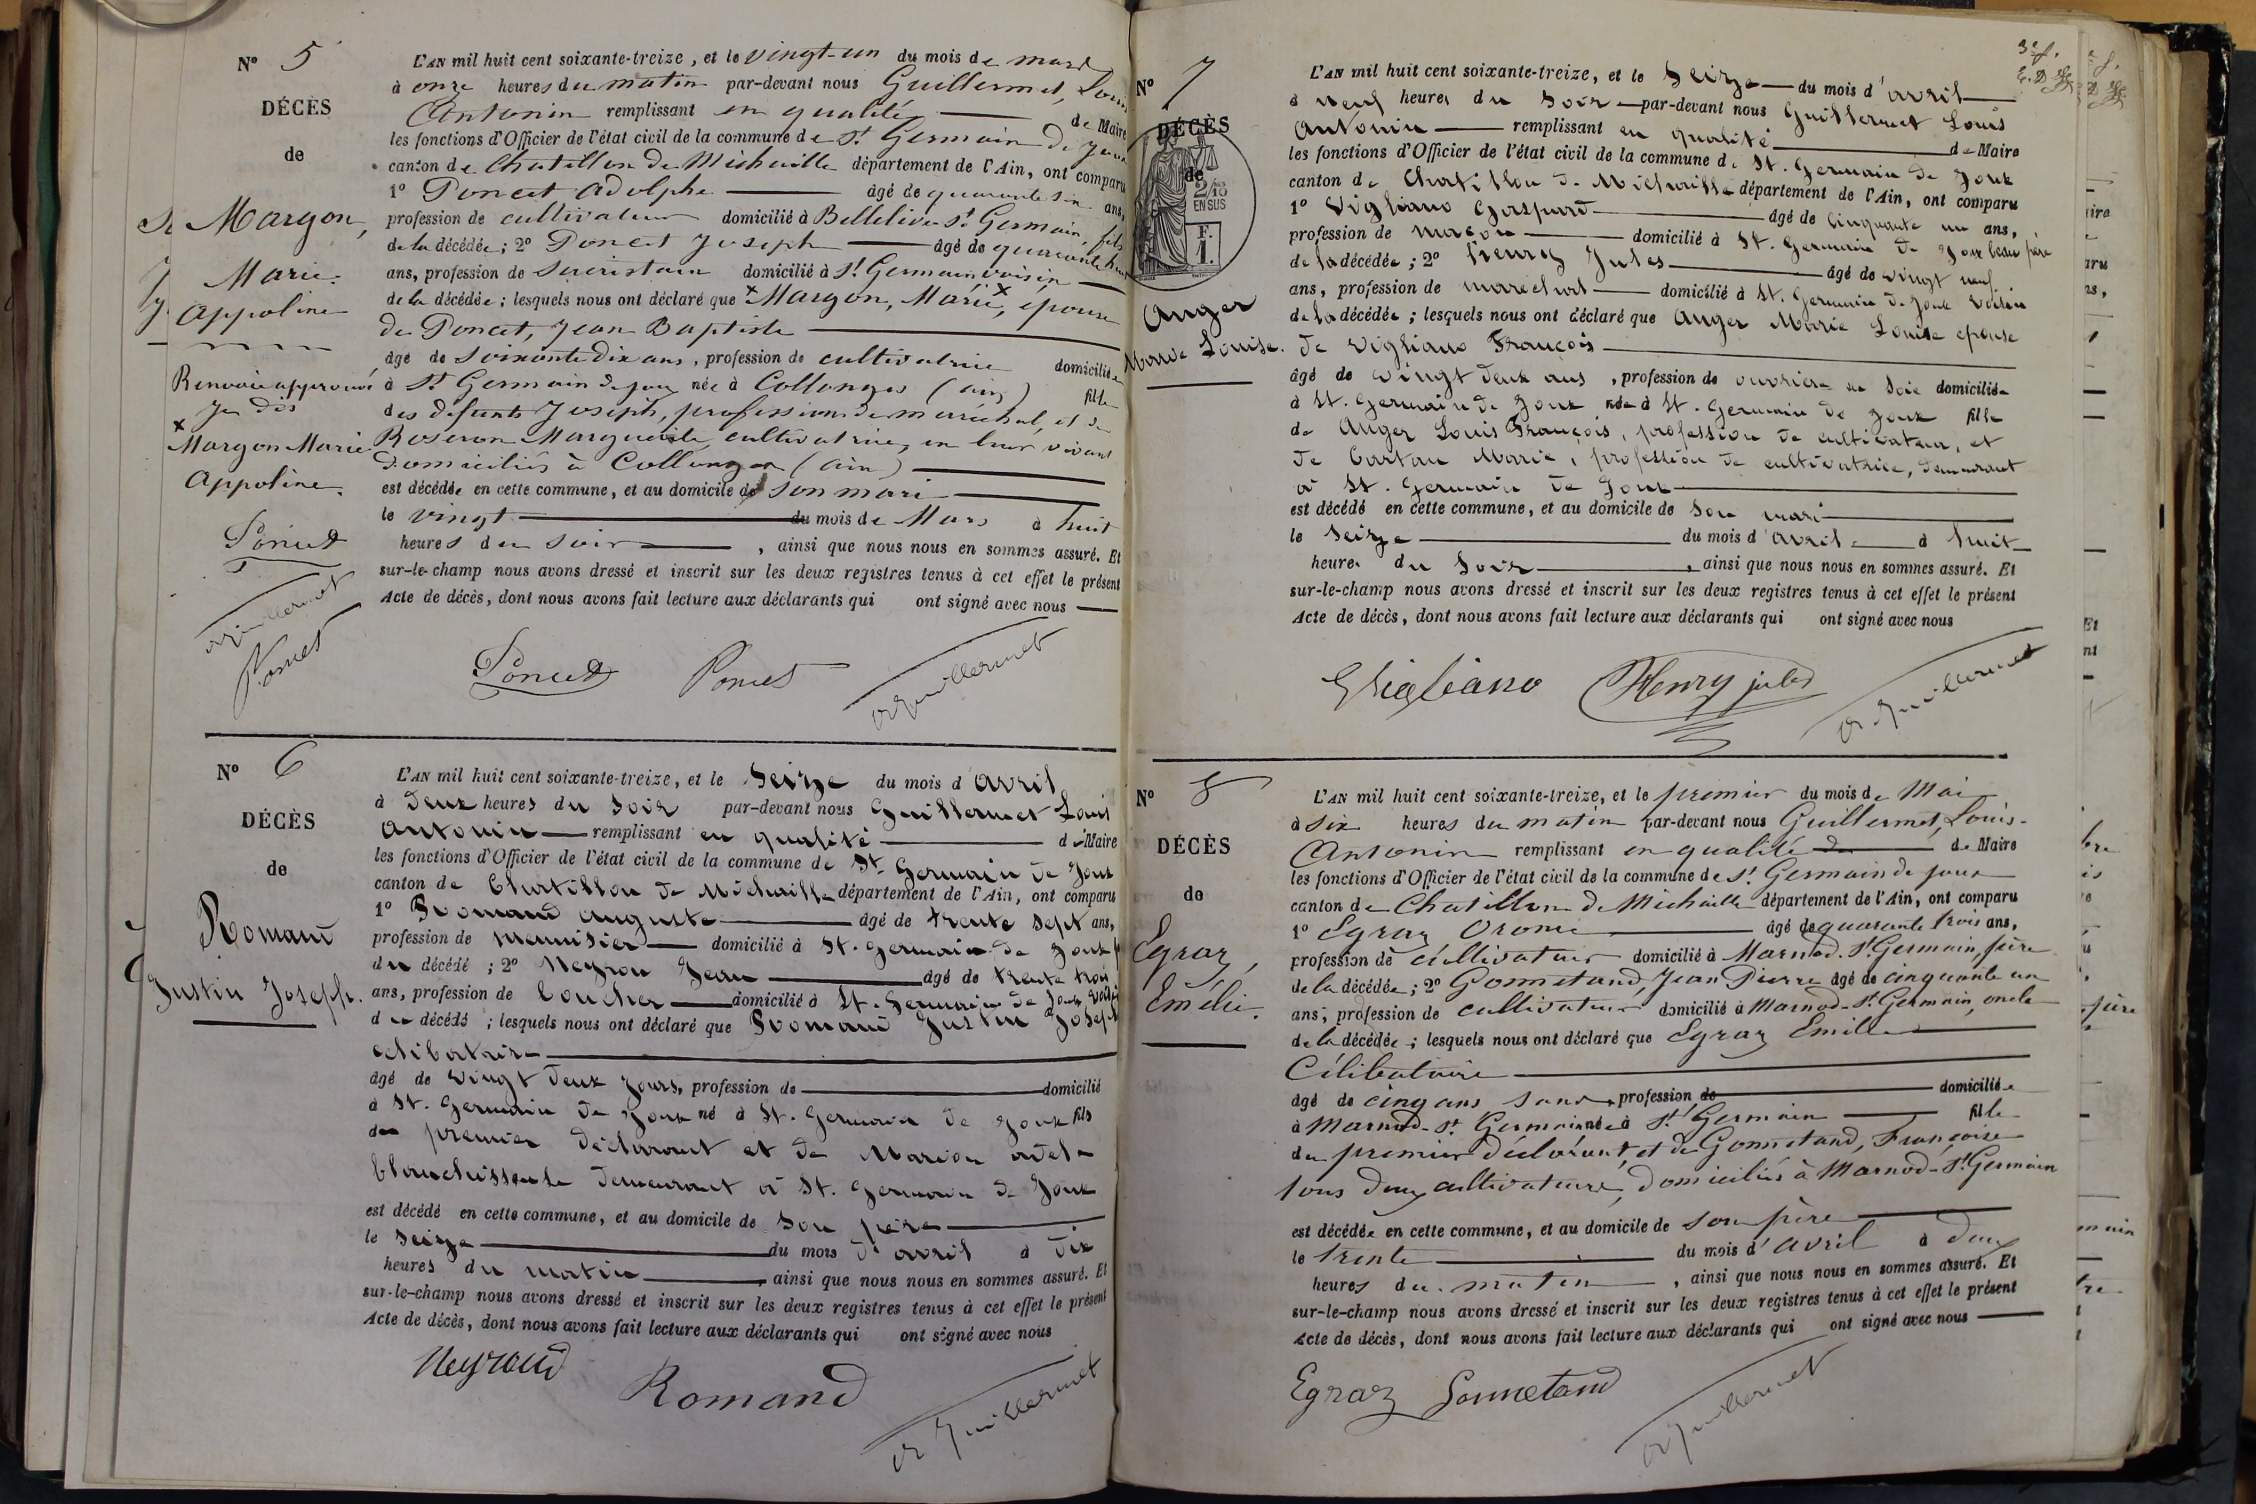 N° 5
DÉCÈS
de
Margon,
Marie
Appoline
Renvoi approuvé
je dis
x
Margon Marie
Appoline.
Poncet
Guillermet
Poncet
L'AN mil huit cent soixante-treize, et le vingt-un du mois de mars
à onze heures du matin par-devant nous Guillermet, Louis
Antonin remplissant en qualité de Maire
les fonctions d'Officier de l'état civil de la commune de St Germain de Joux
canton de Chatillon de Michaille département de l'Ain, ont comparu
1° Poncet Adolphe âgé de quarante six ans,
profession de cultivateur domicilié à Bellelive St Germain, fils
de la décédée; 2° Poncet Joseph âgé de quarante huit
ans, profession de sacristain domicilié à St Germain voisin
de la décédée; lesquels nous ont déclaré que x Margon, Marie x, épouse
de Poncet, Jean Baptiste
âgé de soixante dix ans, profession de cultivatrice domiciliée
à St Germain de joux née à Collonges (ain) fille
des défunts Joseph, profession de maréchal, et de
Roseron Marguerite, cultivatrice, en leur vivant
domiciliés à Collonges (ain)
est décédée en cette commune, et au domicile de son mari
le vingt du mois de Mars à huit
heures du soir, ainsi que nous nous en sommes assuré. Et
sur-le-champ nous avons dressé et inscrit sur les deux registres tenus à cet effet le présent
Acte de décès, dont nous avons fait lecture aux déclarants qui ont signé avec nous
Poncet Poncet Guillermet
N° 6
DÉCÈS
de
Romand
Justin Joseph.
L'AN mil huit cent soixante-treize, et le seize du mois d'avril
à deux heures du soir par-devant nous Guillermet Louis
Antonin remplissant en qualité de Maire
les fonctions d'Officier de l'état civil de la commune de St Germain de Joux
canton de Chatillon de Michaille département de l'Ain, ont comparu
1° Romand Auguste âgé de trente sept ans,
profession de menuisier domicilié à St. Germain de Joux
du décédé; 2° Neyron Jean âgé de trente trois
ans, profession de boucher domicilié à St. Germain de Joux voisin
du décédé; lesquels nous ont déclaré que Romand Justin Joseph
célibataire
âgé de vingt deux jours, profession de domicilié
à St. Germain de Joux né à St. Germain de Joux fils
du premier déclarant et de Marion Adèle
blanchisseuse demeurant à St. Germain de Joux
est décédé en cette commune, et au domicile de son père
le seize du mois d'avril à dix
heures du matin, ainsi que nous nous en sommes assuré. Et
sur-le-champ nous avons dressé et inscrit sur les deux registres tenus à cet effet le présent
Acte de décès, dont nous avons fait lecture aux déclarants qui ont signé avec nous
Neyroud Romand Guillermet
N° 7
DÉCÈS
de
2/10
EN SUS
F.
1.
Anger
Marie Louise.
3e f.
L'AN mil huit cent soixante-treize, et le seize du mois d'avril
à neuf heures du soir par-devant nous Guillermet Louis
Antonin remplissant en qualité de Maire
les fonctions d'Officier de l'état civil de la commune de St. Germain de Joux
canton de Chatillon de Michaille département de l'Ain, ont comparu
1° Vigliano Gaspard âgé de cinquante un ans,
profession de maçon domicilié à St. Germain de Joux beau père
de la décédée; 2° henry Jules âgé de vingt neuf
ans, profession de maréchal domicilié à St. Germain de Joux voisin
de la décédée; lesquels nous ont déclaré que Anger Marie Louise épouse
de Vigliano François
âgé de vingt deux ans, profession de ouvrière en soie domiciliée
à St. Germain de Joux née à St. Germain de Joux fille
de Anger Louis François, profession de cultivateur, et
de Cartau Marie, profession de cultivatrice, demeurant
à St. Germain de Joux
est décédé en cette commune, et au domicile de son mari
le seize du mois d'avril à huit
heures du soir, ainsi que nous nous en sommes assuré. Et
sur-le-champ nous avons dressé et inscrit sur les deux registres tenus à cet effet le présent
Acte de décès, dont nous avons fait lecture aux déclarants qui ont signé avec nous
Vigliano Henry jules Guillermet
N° 8
DÉCÈS
de
Egraz,
Emélie.
L'AN mil huit cent soixante-treize, et le premier du mois de Mai
à six heures du matin par-devant nous Guillermet, Louis-
Antonin remplissant en qualité de de Maire
les fonctions d'Officier de l'état civil de la commune de St Germain de joux
canton de Chatillon de Michaille département de l'Ain, ont comparu
1° Egraz Oronce âgé de quarante trois ans,
profession de cultivateur domicilié à Marnod. St Germain, père
de la décédée; 2° Gonnetand, Jean Pierre âgé de cinquante un
ans, profession de cultivateur domicilié à Marnod-St Germain, oncle
de la décédée; lesquels nous ont déclaré que Egraz Emilie
Célibataire
âgé de cinq ans sans profession de domiciliée
à Marnod-St Germain née à St Germain fille
du premier déclarant, et de Gonnetand, Françoise
tous deux cultivateurs, domiciliés à Marnod-St Germain
est décédée en cette commune, et au domicile de son père
le trente du mois d'avril à deux
heures du matin, ainsi que nous nous en sommes assuré. Et
sur-le-champ nous avons dressé et inscrit sur les deux registres tenus à cet effet le présent
Acte de décès, dont nous avons fait lecture aux déclarants qui ont signé avec nous
Egraz Gonnetand Guillermet